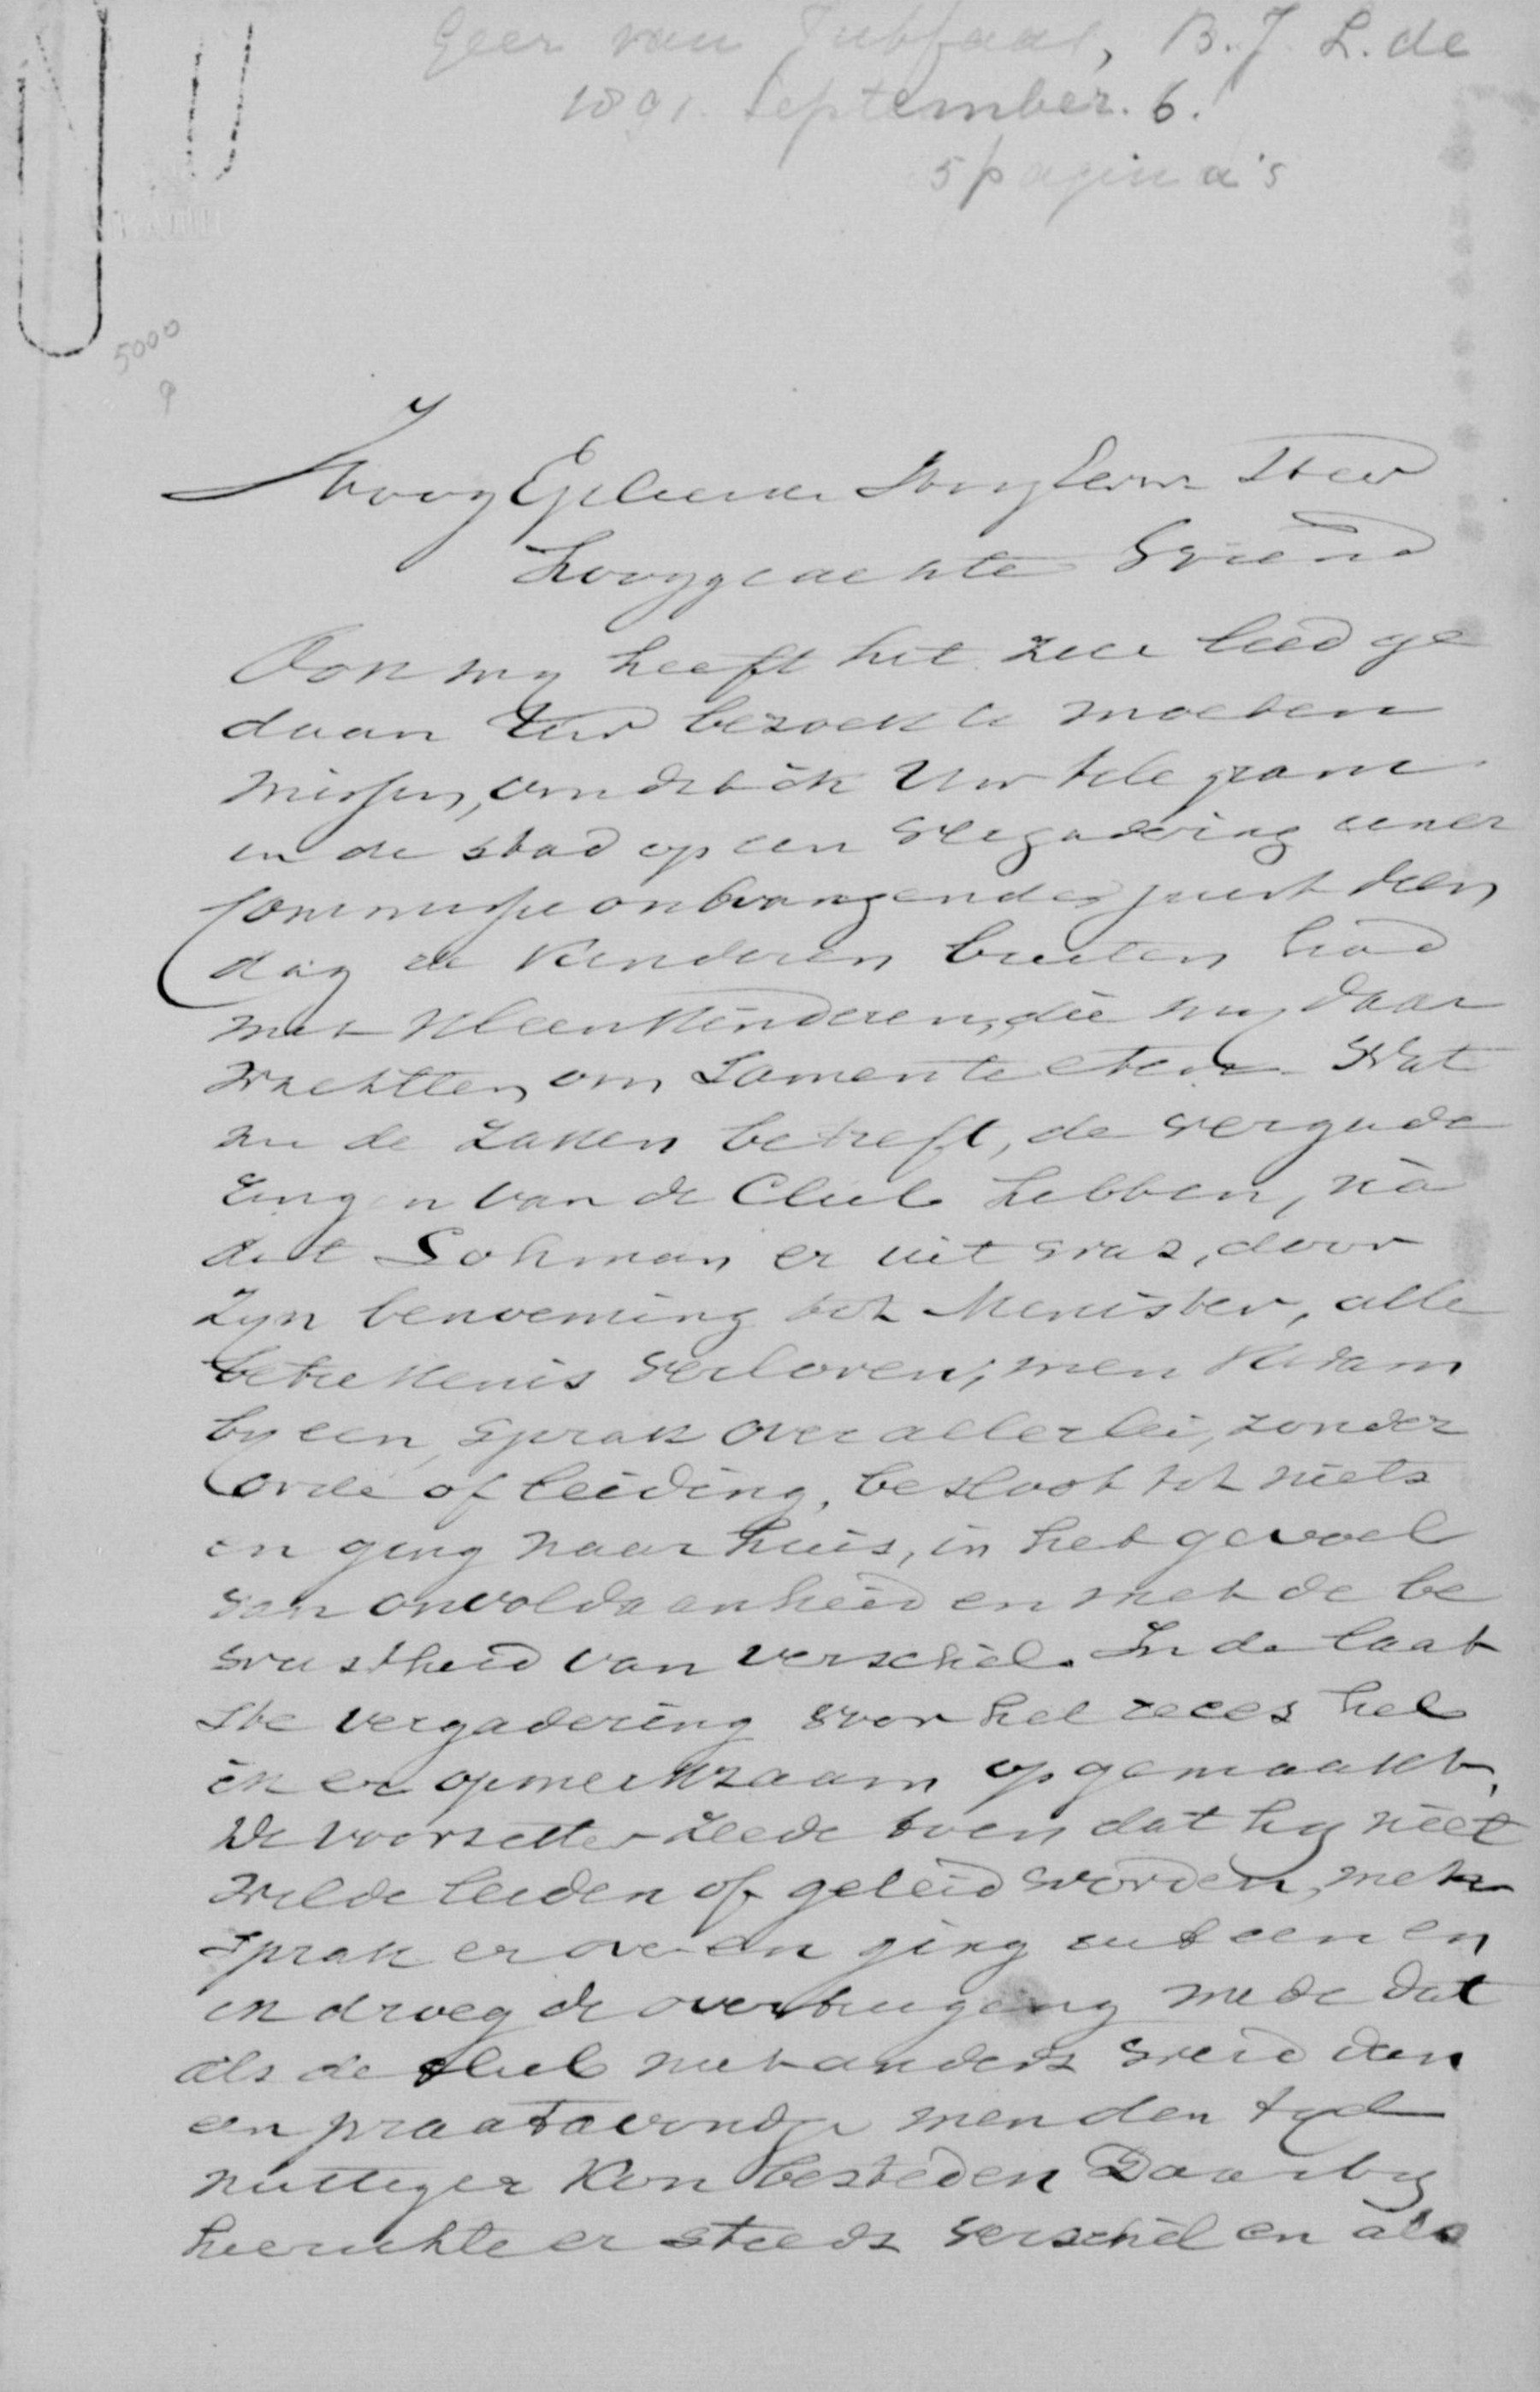 Geer van Jutfaas, B. J. L. de
1891. September. 6.
5 pagina's
5000
9
Hoog Geleerde Heer
Hooggeachte Vriend
Ook my heeft het zeer leed ge
daan Uw bezoek te moeten
missen, omdat ik Uw telegram
in de stad op een vergadering eener
Commissie ontvangende juist dien
dag de Kinderen buiten had
met Kleinkinderen, die my daar
wachtten om Zamen te eten. Wat
nu de zaken betreft, de vergade
ringen van de Club hebben, na
dat Lohman er uit was, door
Zyn benoeming tot Minister, alle
betekenis verloren; men kwam
byeen, sprak over allerlei, zonder
orde of leiding, besloot tot niets
en ging naar huis, in het gevoel
van onvoldaanheid en met de be
wustheid van verschil. In de laat
ste vergadering voor het reces heb
ik er opmerkzaam op gemaakt.
De voorzitter zeide toen dat hy niet
wilde leiden of geleid worden, men
sprak er over en ging uiteen en
ik droeg de overtuiging mede dat
als de Club niet anders werd dan
een praatavondje men den tyd
nuttiger Kon besteden Daarby
heerschte er steeds verschil en als